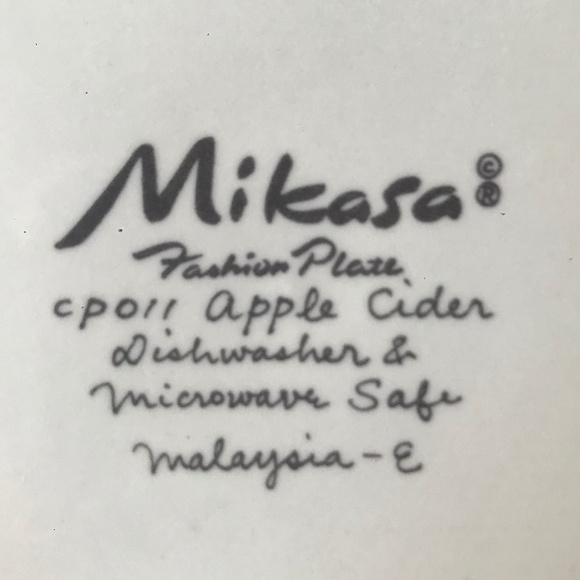 Mikasa ©®
Fashion Plate
cp011 Apple Cider
Dishwasher &
Microwave Safe
Malaysia-E